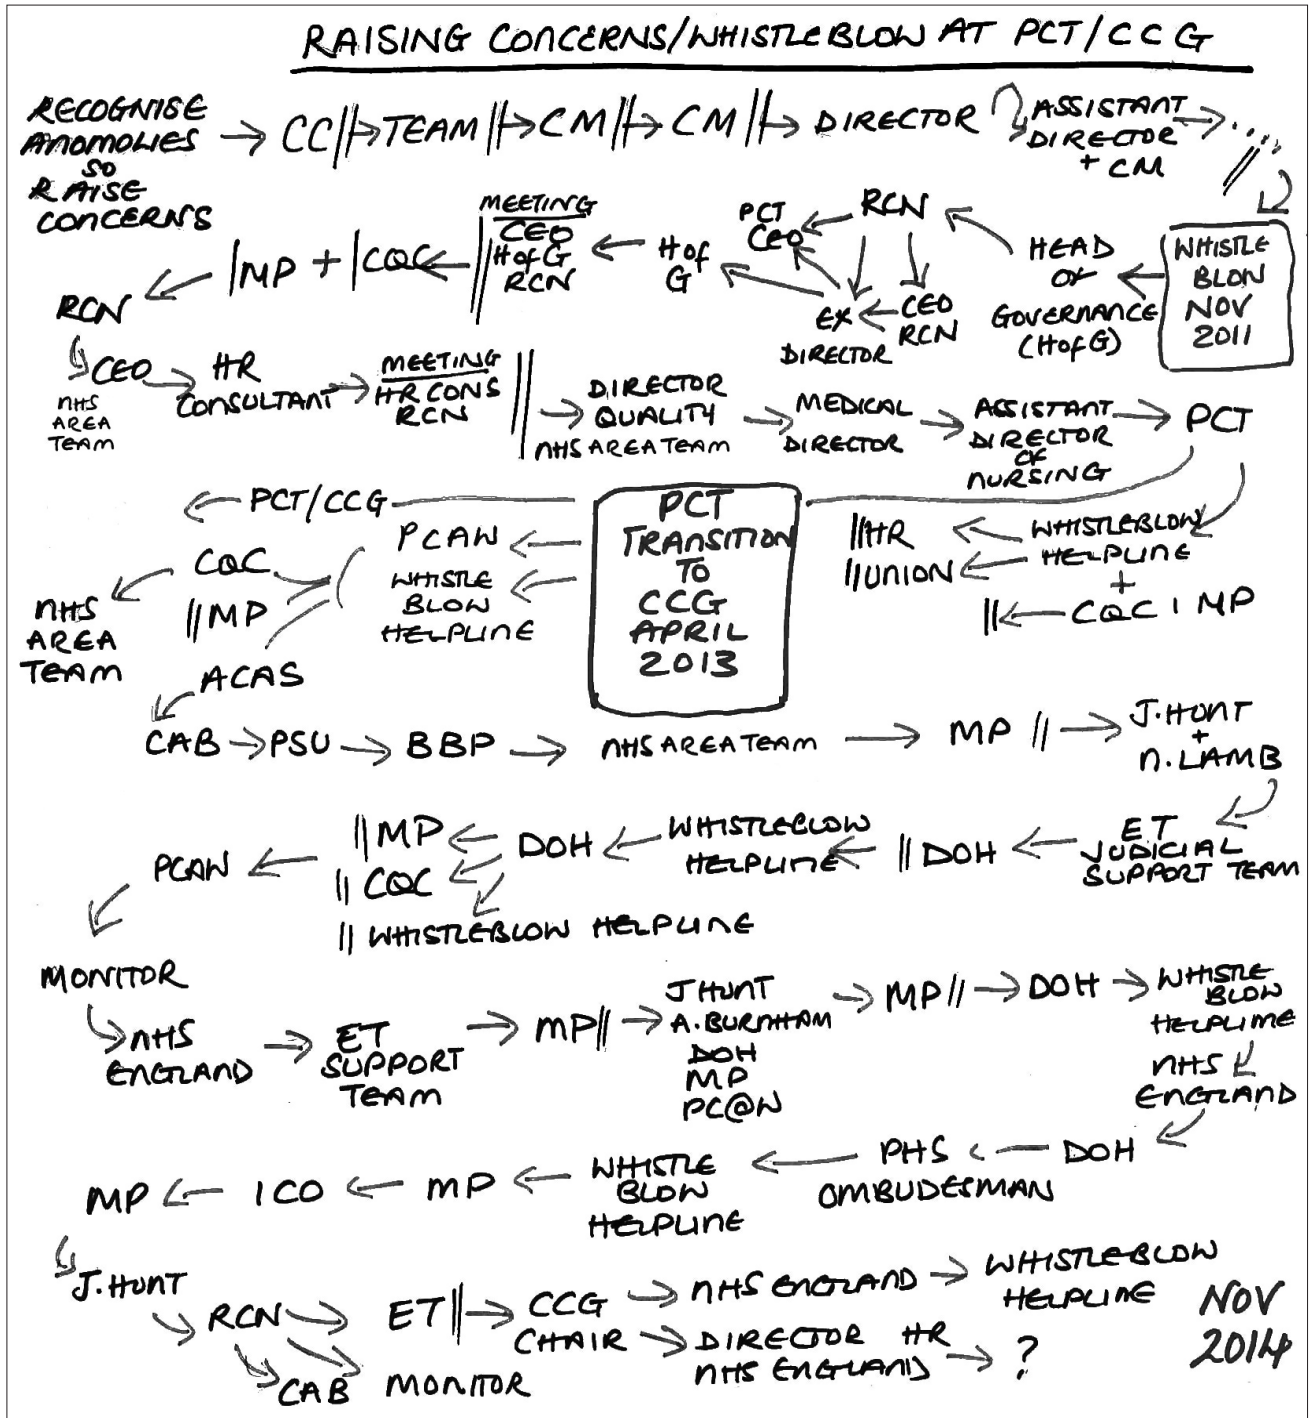 RAISING CONCERNS/WHISTLEBLOW AT PCT/CCG
RECOGNISE
ANOMOLIES
SO
RAISE
CONCERNS
CC TEAM CM CM DIRECTOR
ASSISTANT
DIRECTOR
+ CM
WHISTLE
BLOW
NOV
2011
HEAD
OF
GOVERNANCE
(HofG)
RCN
PCT
CEO
CEO
RCN
EX
DIRECTOR
H of
G
MEETING
CEO
HofG
RCN
MP + CQC
RCN
CEO
NHS
AREA
TEAM
HR
CONSULTANT
MEETING
HR CONS
RCN
DIRECTOR
QUALITY
NHS AREA TEAM
MEDICAL
DIRECTOR
ASSISTANT
DIRECTOR
OF
NURSING
PCT
WHISTLEBLOW
HELPLINE
+
CQC | MP
HR
UNION
PCT
TRANSITION
TO
CCG
APRIL
2013
PCT/CCG
PCAW
WHISTLE
BLOW
HELPLINE
CQC
MP
ACAS
NHS
AREA
TEAM
CAB PSU BBP NHS AREA TEAM MP
J.HUNT
+
N.LAMB
ET
JUDICIAL
SUPPORT TEAM
DOH
WHISTLEBLOW
HELPLINE
DOH
MP
CQC
WHISTLEBLOW HELPLINE
PCAW
MONITOR
NHS
ENGLAND
ET
SUPPORT
TEAM
MP
J HUNT
A.BURNHAM
DOH
MP
PC@W
MP DOH
WHISTLE
BLOW
HELPLINE
NHS
ENGLAND
DOH
PHS
OMBUDESMAN
WHISTLE
BLOW
HELPLINE
MP
ICO
MP
J.HUNT
RCN
CAB
ET
MONITOR
CCG
CHAIR
NHS ENGLAND
WHISTLEBLOW
HELPLINE
DIRECTOR HR
NHS ENGLAND
?
NOV
2014